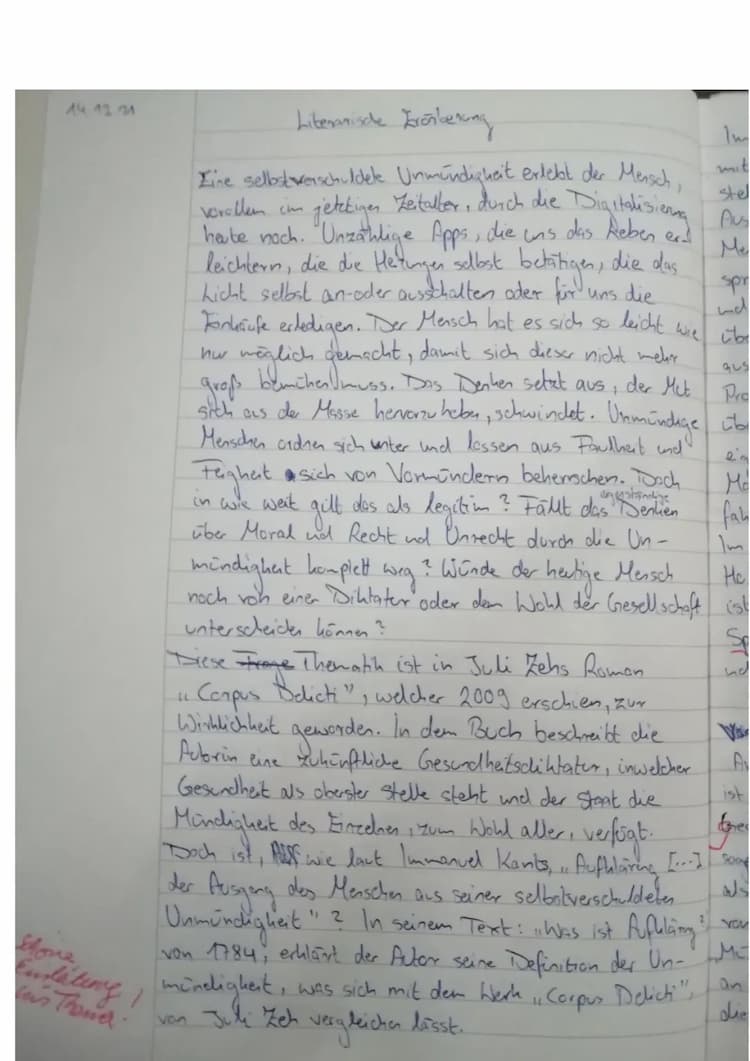 14.12.21
Literarische Erörterung
Eine selbstverschuldete Unmündigkeit erlebt der Mensch,
vorallem im jetztigen Zeitalter, durch die Digitalisierung
heute noch. Unzählige Apps, die uns das Leben er-
leichtern, die die Heizungen selbst betätigen, die das
Licht selbst an-oder ausschalten oder für uns die
Einkäufe erledigen. Der Mensch hat es sich so leicht wie
nur möglich gemacht, damit sich dieser nicht mehr
groß bemühen muss. Das Denken setzt aus, der Mut
sich aus der Masse hervorzuheben, schwindet. Unmündige
Menschen ordnen sich unter und lassen aus Faulheit und
Feigheit sich von Vormündern beherrschen. Doch
in wie weit gilt das als legitim? Fällt das eigenständige Denken
über Moral und Recht und Unrecht durch die Un-
mündigkeit komplett weg? Würde der heutige Mensch
noch von einer Diktatur oder dem Wohl der Gesellschaft
unterscheiden können?
Diese Frage Thematik ist in Juli Zehs Roman
„Corpus Delicti", welcher 2009 erschien, zur
Wirklichkeit geworden. In dem Buch beschreibt die
Autorin eine zukünftliche Gesundheitsdiktatur, inwelcher
Gesundheit als oberster Stelle steht und der Staat die
Mündigkeit des Einzelnen, zum Wohl aller, verfügt.
Doch ist, wie laut Immanuel Kants, „Aufklärung [...]
der Ausgang des Menschen aus seiner selbstverschuldeten
Unmündigkeit"? In seinem Text: „Was ist Aufkläng?"
von 1784, erklärt der Autor seine Definition der Un-
mündigkeit, was sich mit dem Werk „Corpus Delicti",
von Juli Zeh vergleichen lässt.
Schöne
Einleitung!
ins Thema.